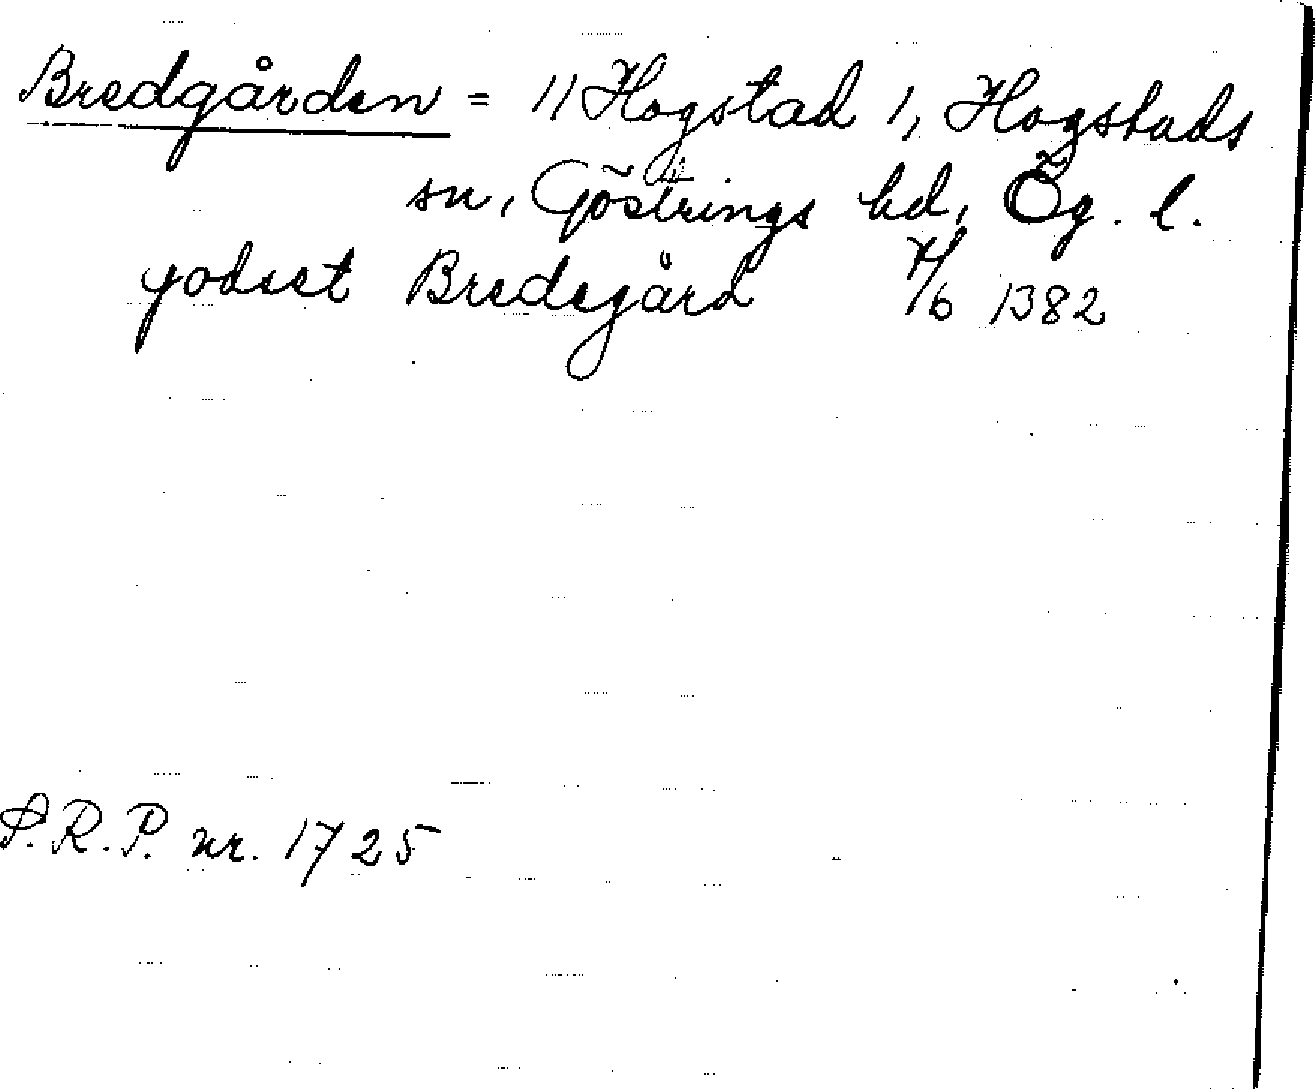 Bredgården = 11 Hogstad 1, Hogstads
sn, Göstrings hd, Ög. l.
godset Bredegård 7/6 1382
S.R.P. nr. 1725